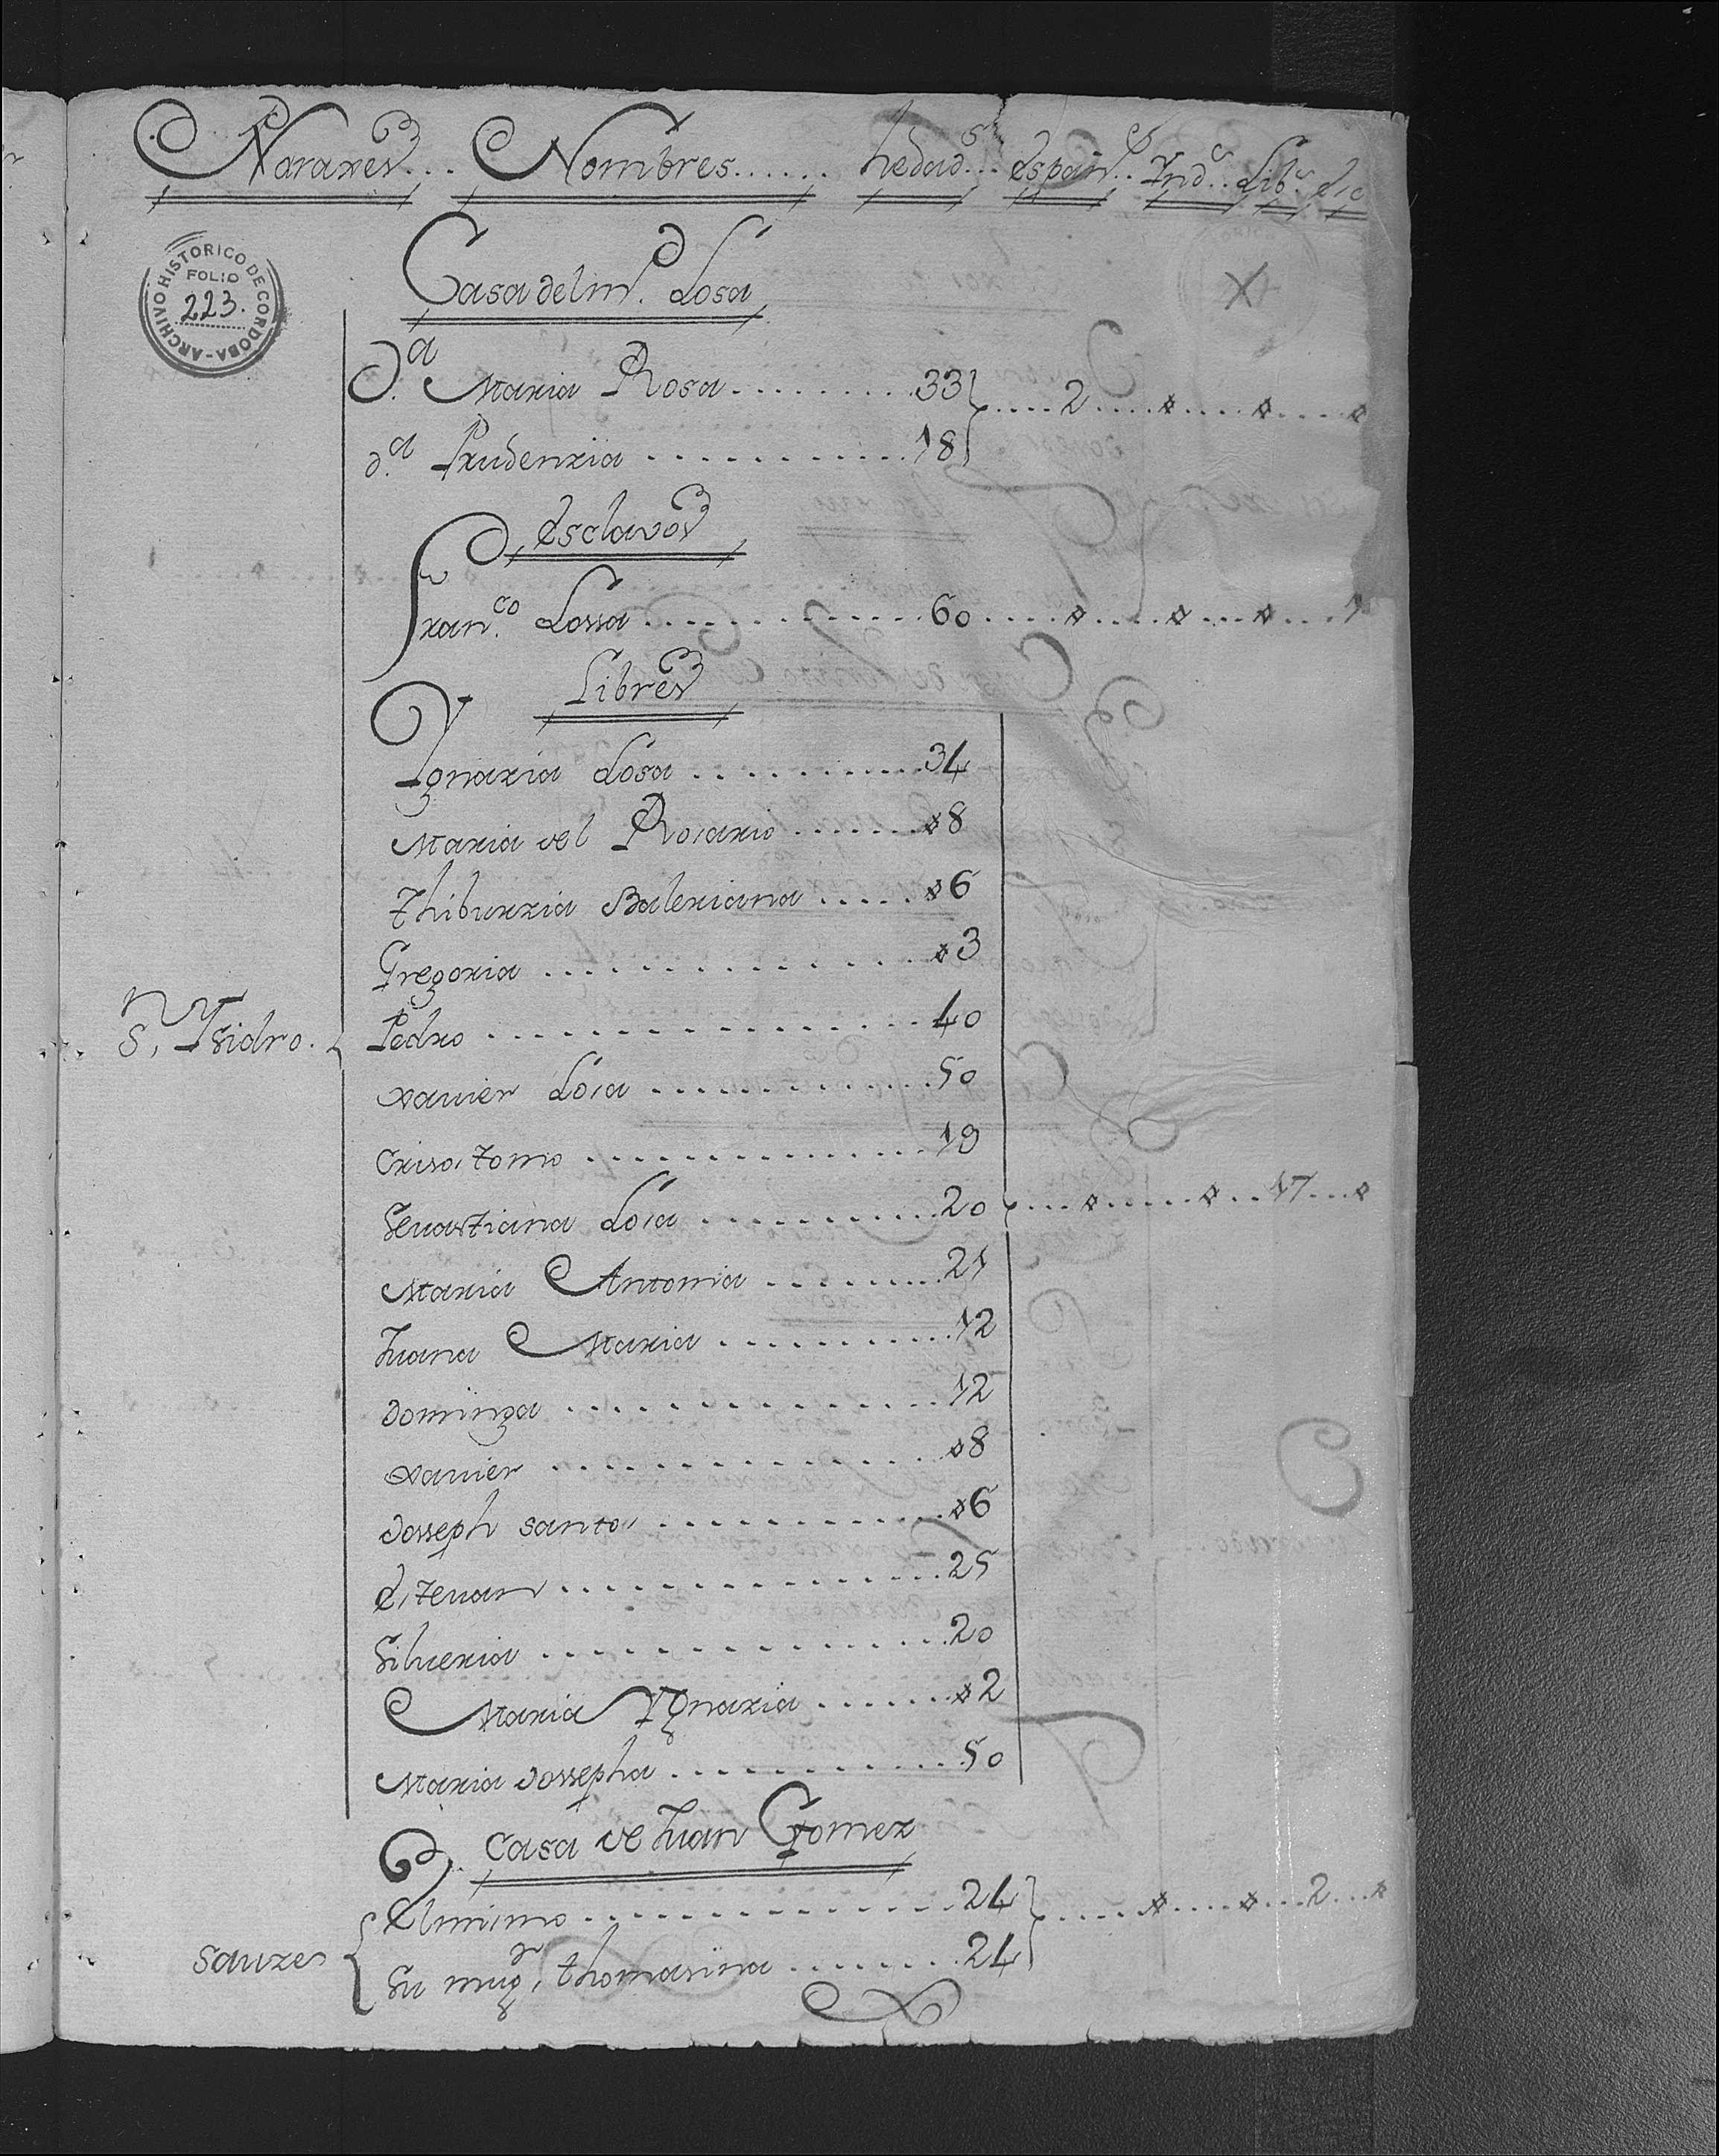 Paraxes... Nombres...... hedad.s... Españ.s.. Ynd.s.. Lib.s Esc
ARCHIVO HISTORICO DE CORDOBA
FOLIO
223.
Casa del m.º Losa
D.ª Maria Rosa.........33 ....2....*....*....*
d.ª Prudenxia ............18
Esclavos
Fran.co Lossa .............60....*....*...*...1
Libres
Ygnaxia Losa ...........34
Maria del Rosario .......*8
Thiburzia Baleriana .....*6
Gregoria ..............*3
S.n Ysidro. Pedro ................40
Xavier Losa ............50
Crisostomo ..............19
Sevastiana Losa ..........20 ....*.....*...17...*
Maria Antonia .........21
Juana Maria ..........12
Dominga .............12
Xavier .............*8
Josseph Santos ...........*6
Estevan ...............25
Silveria ...............20
Maria Ygnaxia ......*2
Maria Jossepha ...........50
Casa de Juan Gomez
El mismo ...............24 .....*....*...2...*
Sauzes Su mug.r thomasina ........24